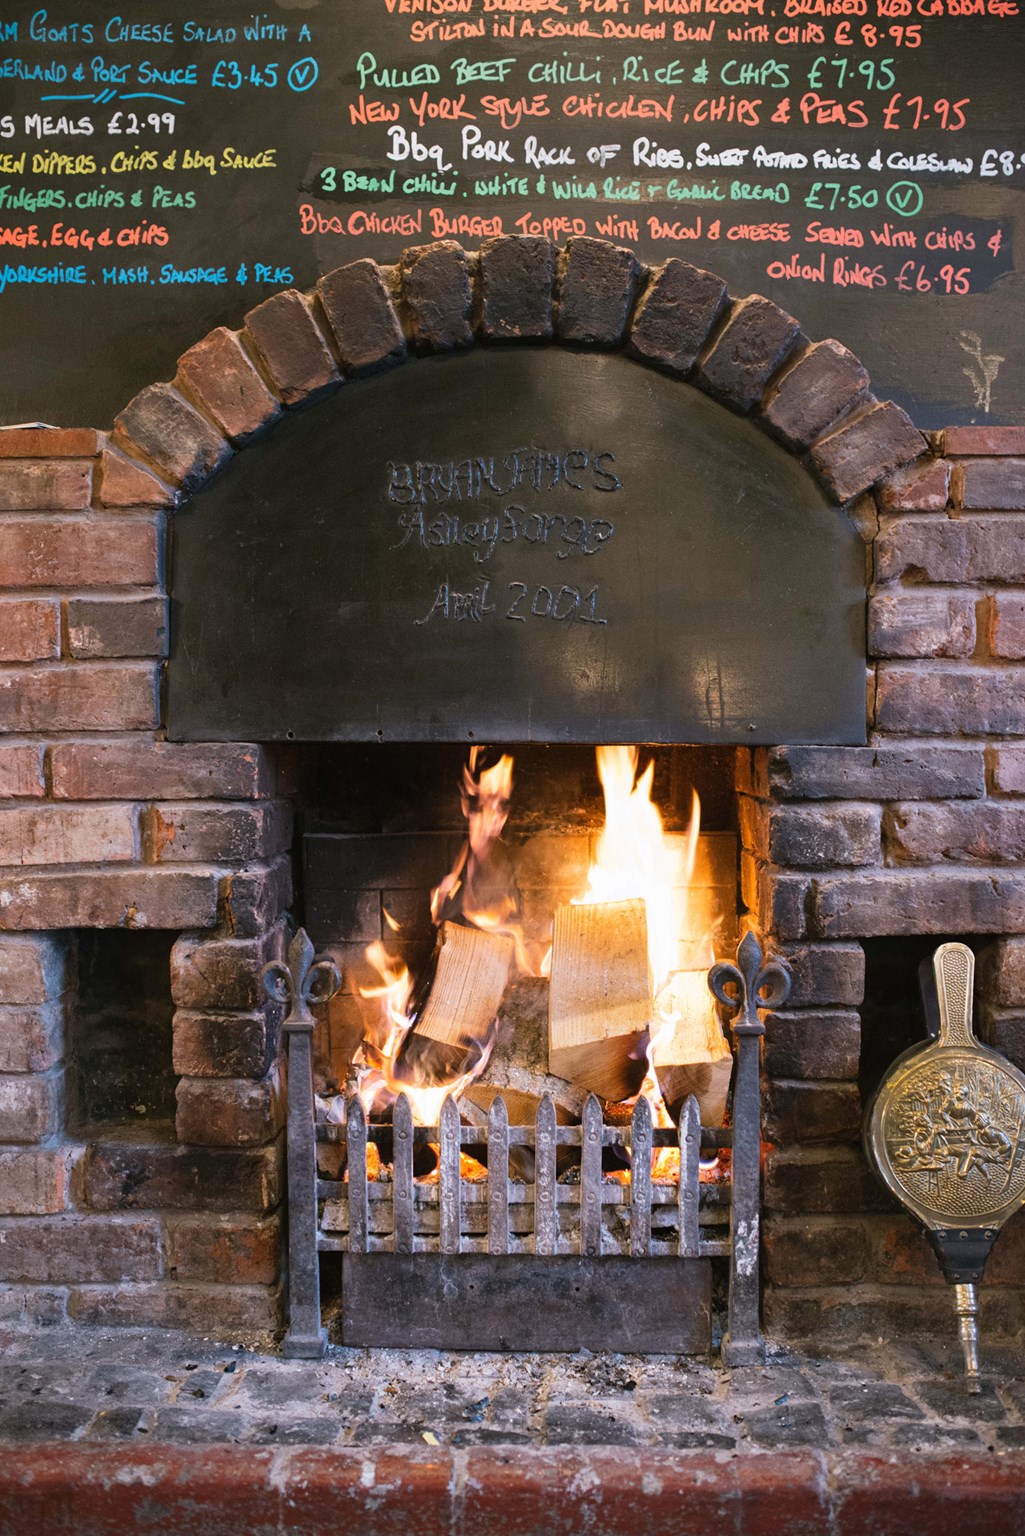 RM GOATS CHEESE SALAD WITH A
& PORT SAUCE £3.45 V
MEALS £2.99
DIPPERS, CHIPS & BBQ SAUCE
FINGERS, CHIPS & PEAS
AGE, EGG & CHIPS
YORKSHIRE, MASH, SAUSAGE & PEAS
VENISON BURGER, FLAT MUSHROOM, BRAISED RED CABBAGE
STILTON IN A SOUR DOUGH BUN WITH CHIPS £8.95
PULLED BEEF CHILLI, RICE & CHIPS £7.95
NEW YORK STYLE CHICKEN, CHIPS & PEAS £7.95
BBQ PORK RACK OF RIBS, SWEET POTATO FRIES & COLESLAW £8.
3 BEAN CHILLI, WHITE & WILD RICE + GARLIC BREAD £7.50 V
BBQ CHICKEN BURGER TOPPED WITH BACON & CHEESE SERVED WITH CHIPS &
ONION RINGS £6.95
BRYAN JAMES
Ashley Forge
April 2001